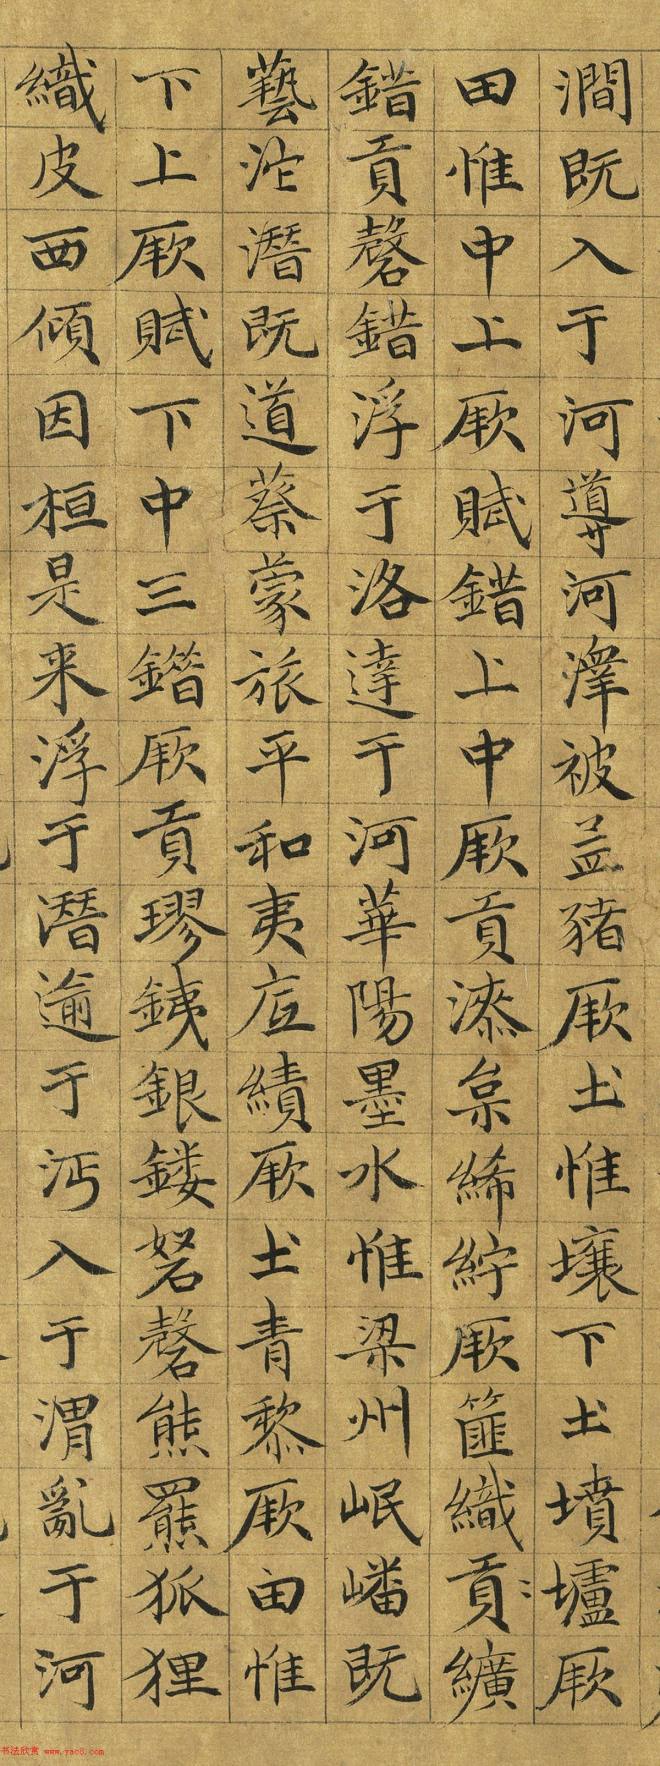 澗既入于河導河澤被盖豬厥土惟壤下土墳壚厥
田惟中上厥賦錯上中厥貢漆枲絺紵厥篚織貢纊
錯貢磬錯浮于洛達于河華陽墨水惟梁州岷嶓既
藝沱潛既道蔡蒙旅平和夷底績厥土青黎厥田惟
下上厥賦下中三錯厥貢璆銕銀鏤砮磬熊羆狐狸
織皮西傾因桓是来浮于潛逾于沔入于渭亂于河
书法欣赏 www.yac8.com